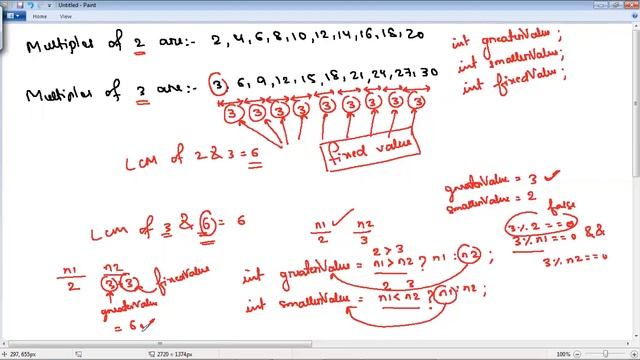 Untitled - Paint
Multiples of 2 are:- 2, 4, 6, 8, 10, 12, 14, 16, 18, 20
int greaterValue;
int smallerValue;
int fixedValue;
Multiples of 3 are:- 3, 6, 9, 12, 15, 18, 21, 24, 27, 30
3 3 3 3 3 3 3 3 3
fixed value
LCM of 2 & 3 = 6
greaterValue = 3
smallerValue = 2
false
3 % 2 == 0
3 % n1 == 0 &&
3 % n2 == 0
LCM of 3 & 6 = 6
n1 n2
2 3
2 > 3
int greaterValue = n1 > n2 ? n1 : n2 ;
2 3
int smallerValue = n1 < n2 ? n1 : n2 ;
n1 n2
2 3 + 3 fixedValue
greaterValue
= 6
297, 655px
2720 × 1374px
100%